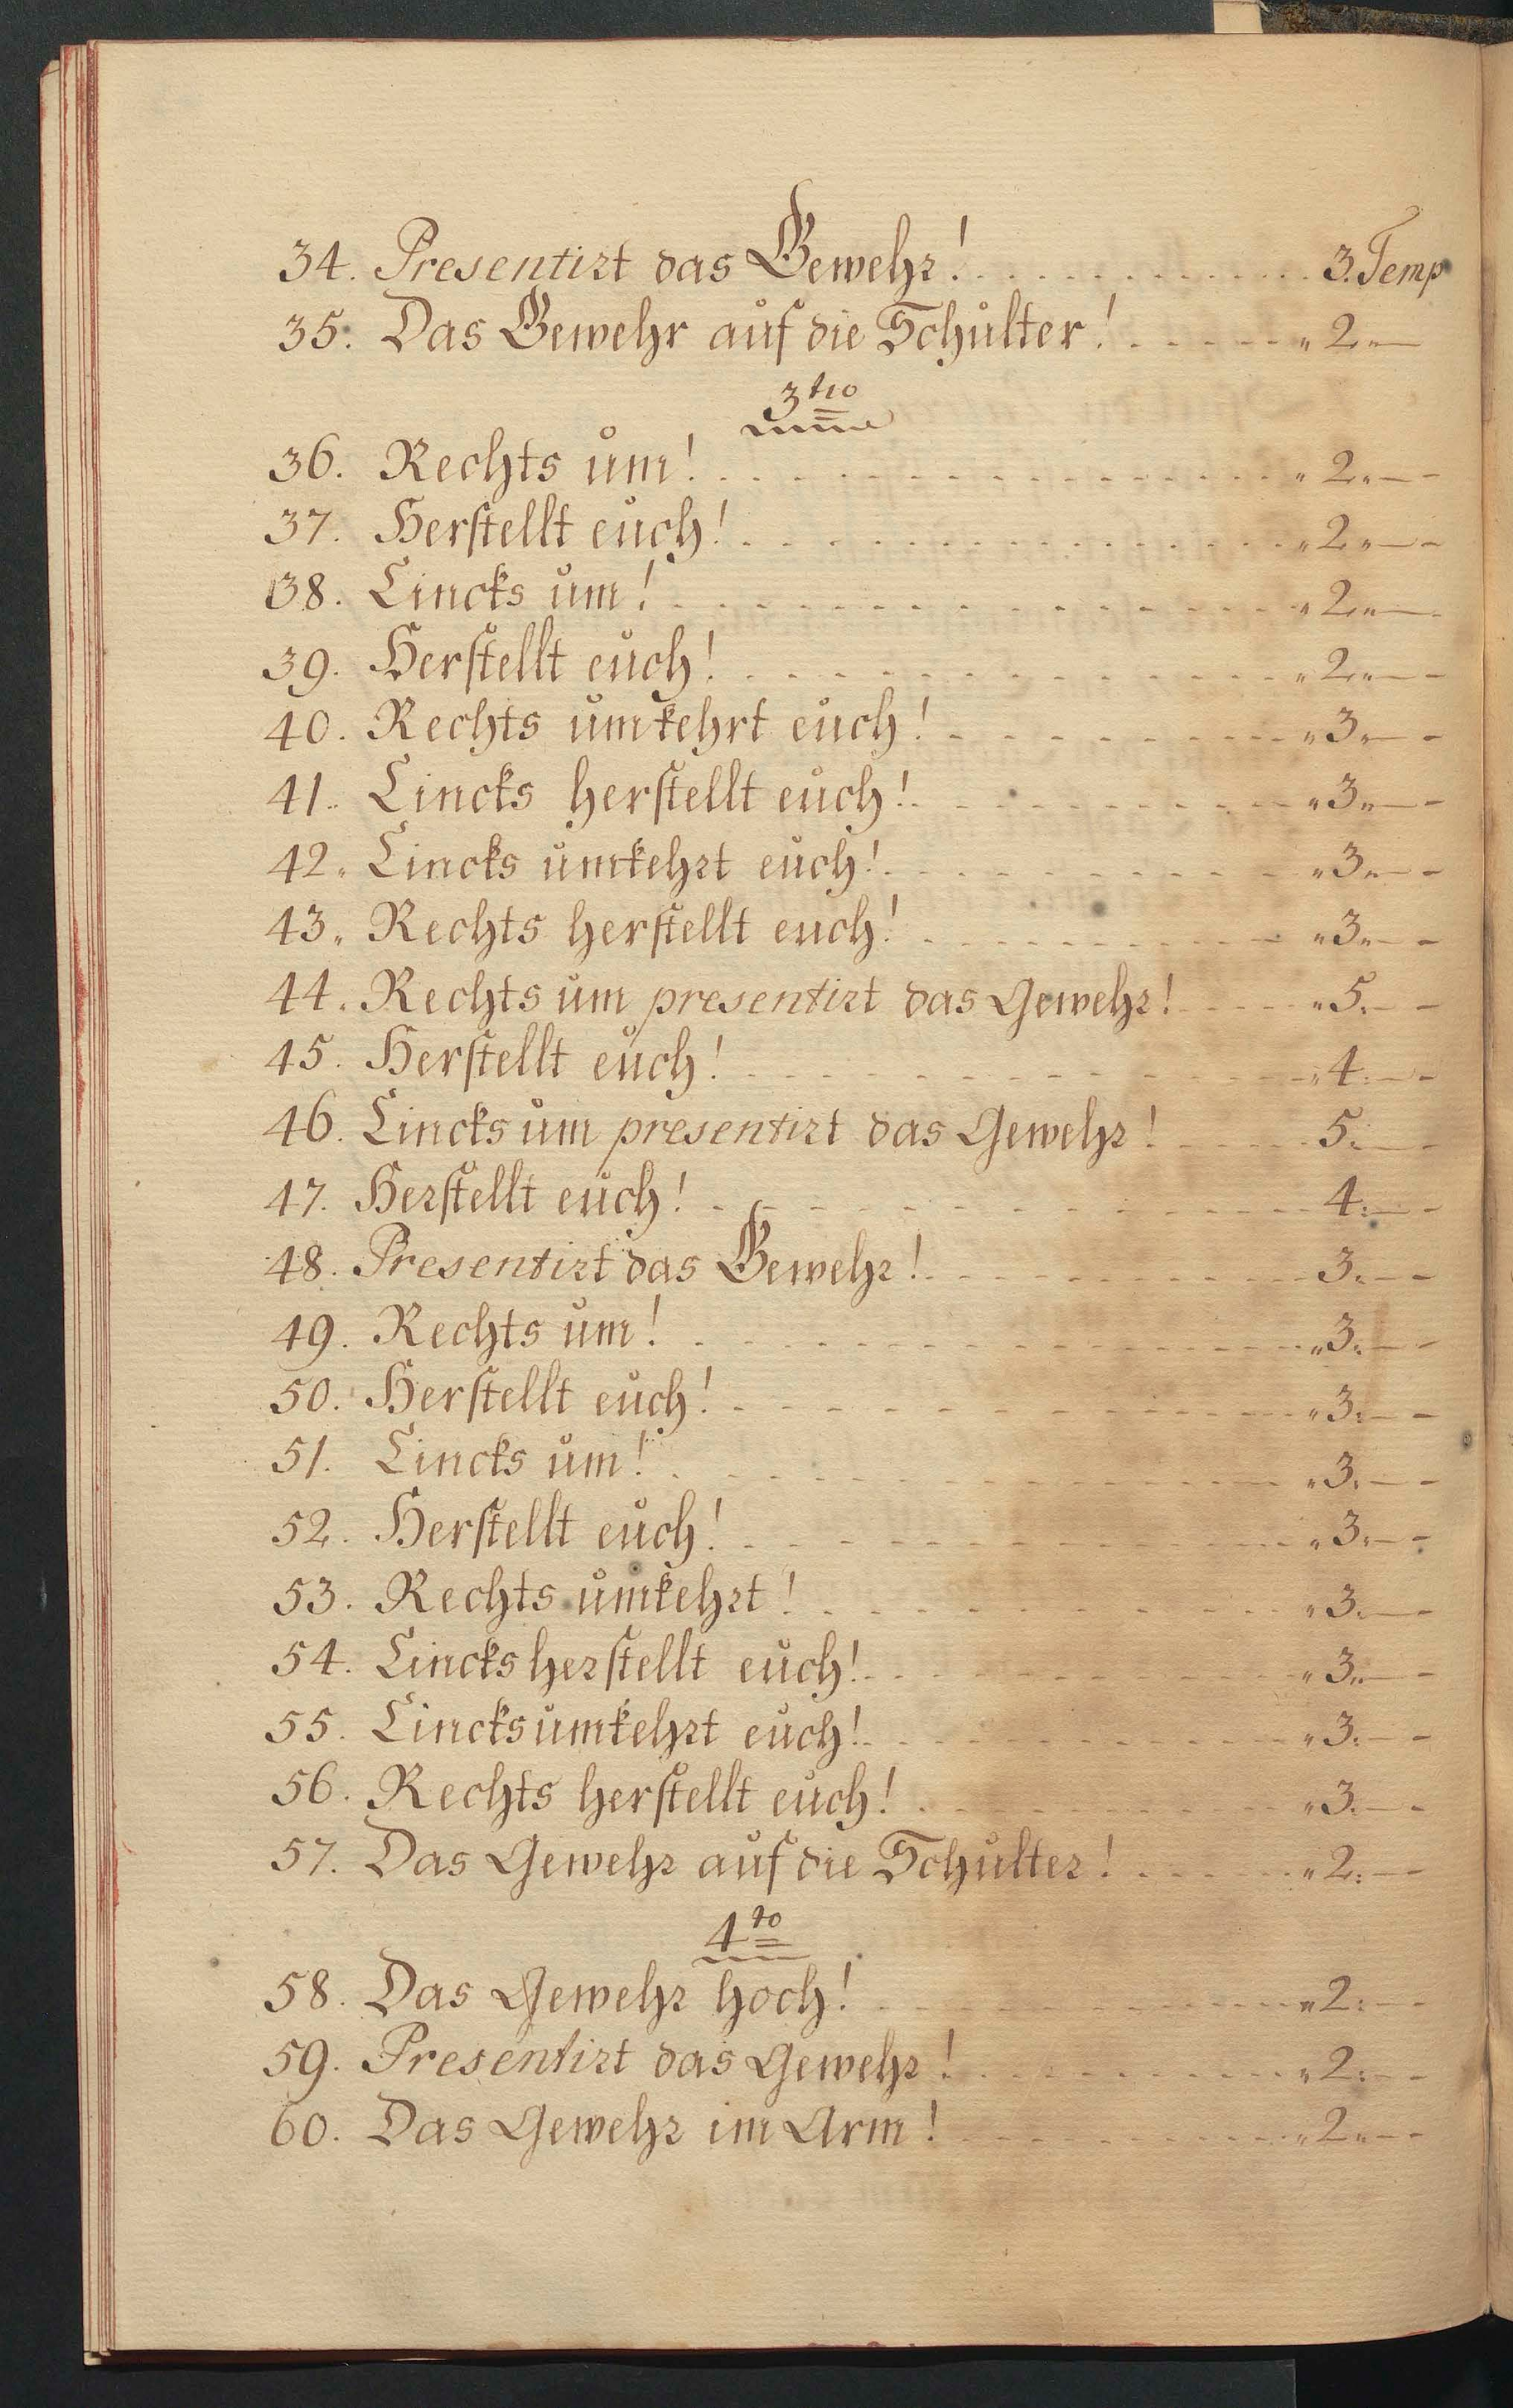 34. Presentirt das Gewehr! . . . . . . . . . . . . 3. Temp
35. Das Gewehr auf die Schulter! . - - - - - " 2 " —
3tio
36. Rechts um! . . . - - - - - - - - - - " 2 " — -
37. Herstellt euch! . - - - - - - - - - - " 2 " — -
38. Lincks um! - - - - - - - - - - - - " 2 " —
39. Herstellt euch! - - - - - - - - - - " 2 " — -
40. Rechts umkehrt euch! - - - - - - - - " 3 " — -
41. Lincks herstellt euch! - - - - - - - - " 3 " — -
42. Lincks umkehrt euch! - - - - - - - - " 3 " — -
43. Rechts herstellt euch! - - - - - - - - " 3 " — -
44. Rechts um presentirt das Gewehr! - - - - " 5. — -
45. Herstellt euch! - - - - - - - - - - " 4: — -
46. Lincks um presentirt das Gewehr! - - - - 5: — -
47. Herstellt euch! - - - - - - - - - - 4: — -
48. Presentirt das Gewehr! - - - - - - - - 3: — -
49. Rechts um! - - - - - - - - - - " 3: — -
50. Herstellt euch! - - - - - - - - - - " 3: — -
51. Lincks um! - - - - - - - - - - " 3: — -
52. Herstellt euch! - - - - - - - - - - " 3: — -
53. Rechts umkehrt! - - - - - - - - - - " 3: — -
54. Lincks herstellt euch! - - - - - - - - " 3 " — -
55. Lincks umkehrt euch! - - - - - - - - " 3: — -
56. Rechts herstellt euch! - - - - - - - - " 3. — -
57. Das Gewehr auf die Schulter! - - - - - " 2: — -
4to
58. Das Gewehr hoch! - - - - - - - - - - " 2: — -
59. Presentirt das Gewehr! - - - - - - - - " 2: — -
60. Das Gewehr im Arm! - - - - - - - - " 2 " — -